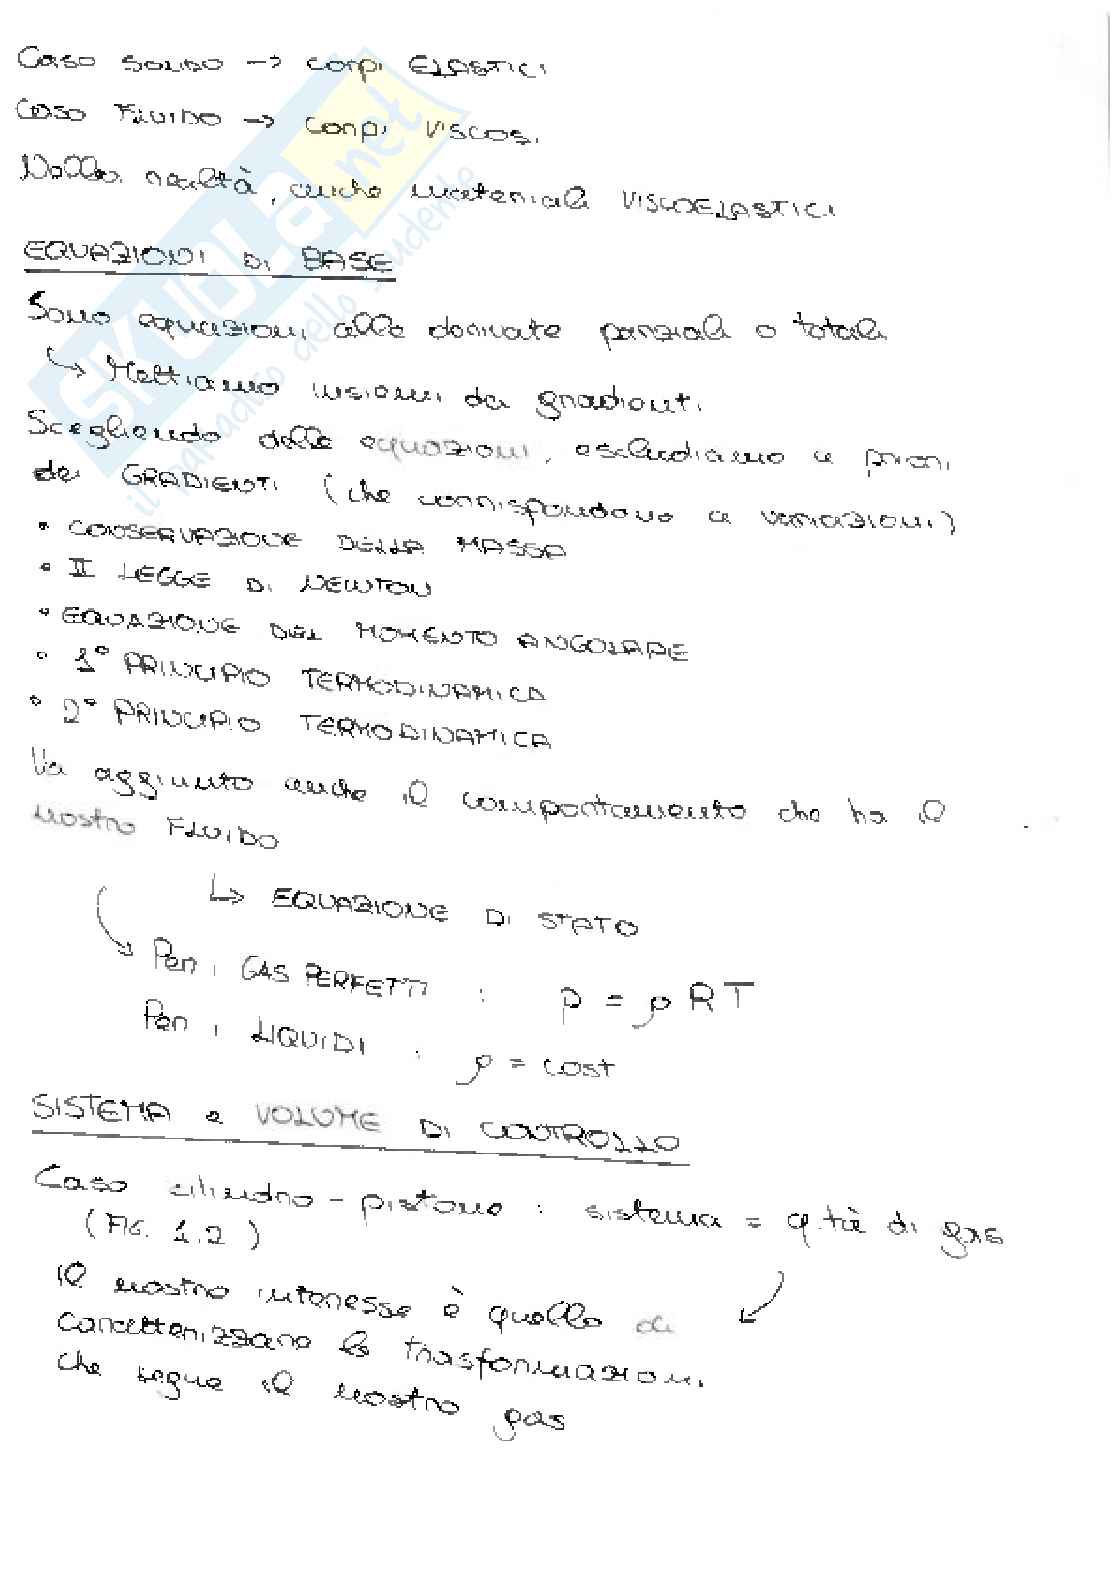 Caso SOLIDO → corpi ELASTICI
Caso FLUIDO → corpi VISCOSI
Nella realtà, anche materiali VISCOELASTICI
EQUAZIONI DI BASE
Sono equazioni alle derivate parziali o totali
↳ Mettiamo insiemi dei gradienti.
Scegliendo delle equazioni, escludiamo a priori
dei GRADIENTI (che corrispondono a variazioni)
• CONSERVAZIONE DELLA MASSA
• II LEGGE DI NEWTON
• EQUAZIONE DEL MOMENTO ANGOLARE
• 1° PRINCIPIO TERMODINAMICA
• 2° PRINCIPIO TERMODINAMICA
Va aggiunto anche il comportamento che ha il
nostro FLUIDO
↳ EQUAZIONE DI STATO
Per i GAS PERFETTI : p = ρRT
Per i LIQUIDI : ρ = cost
SISTEMA e VOLUME DI CONTROLLO
Caso cilindro - pistone : sistema = q.tà di gas
(FIG. 1.2)
Il nostro interesse è quello di
caratterizzare le trasformazioni
che segue il nostro gas
SKUOLA.net
il paradiso dello studente